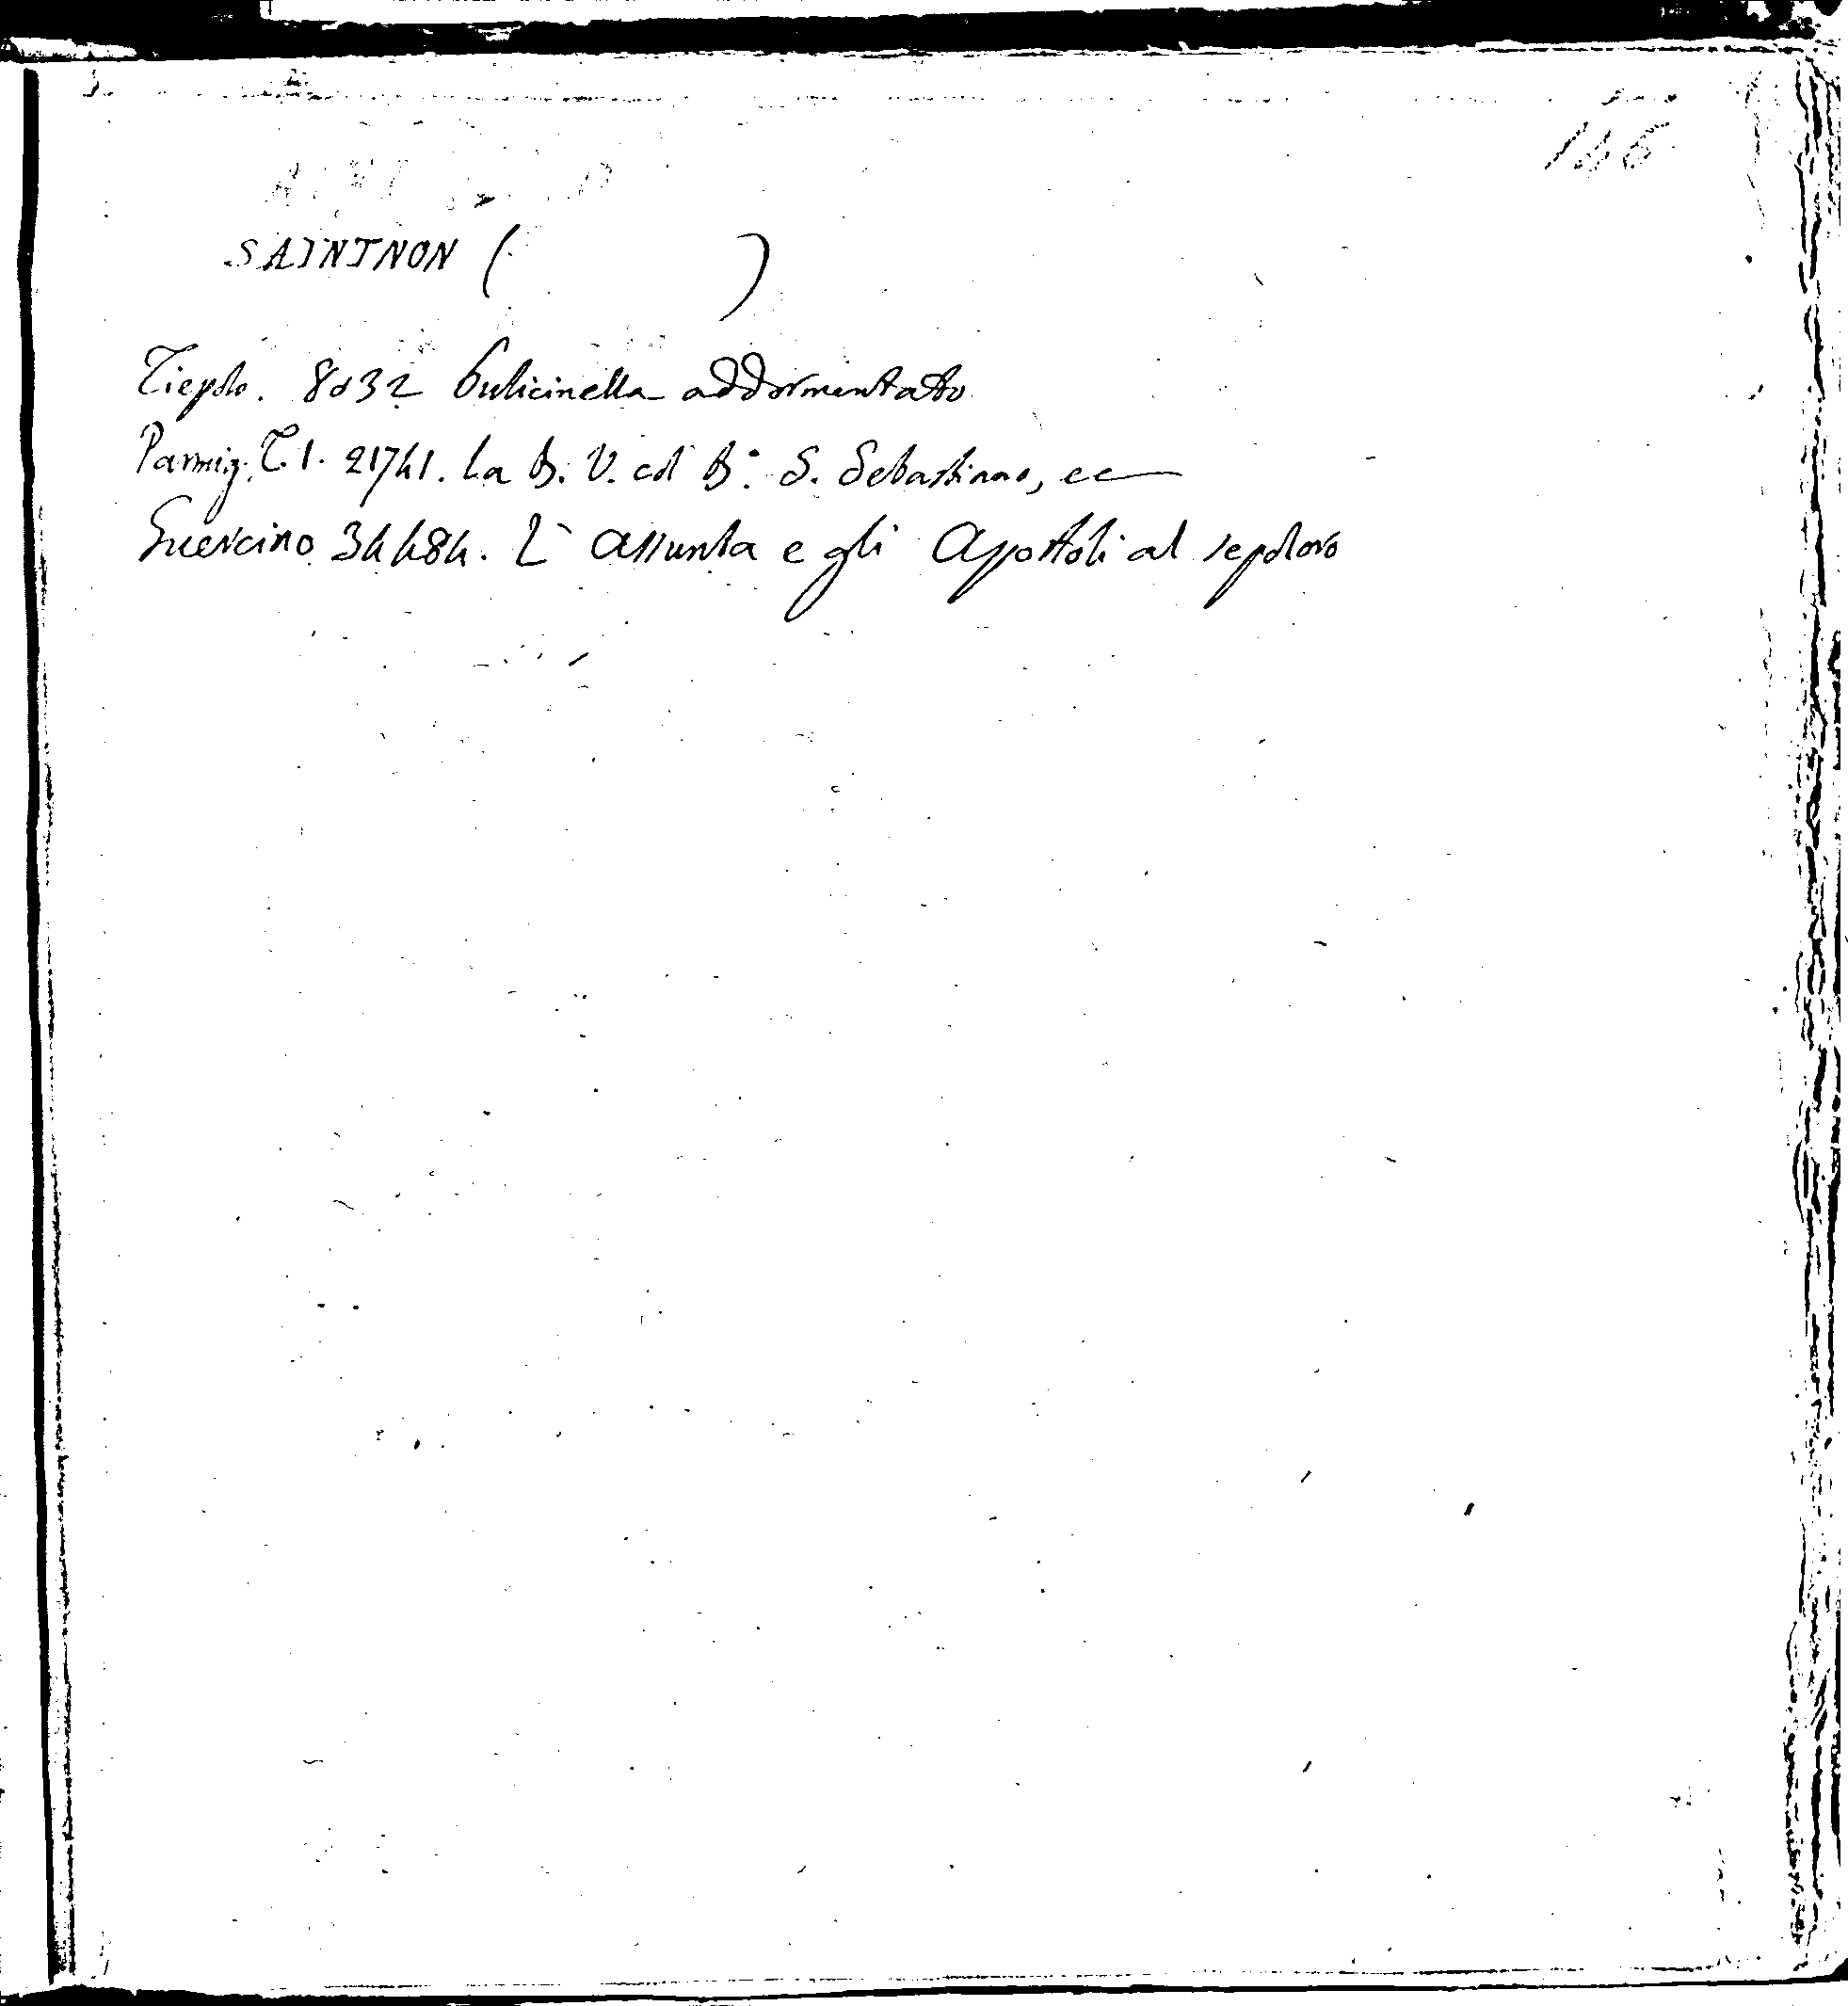 146
SAINTNON ( )
Tiepolo. 8032 Pulicinella addormentato
Parmig. T. 1. 21741. La B. V. col B.º S. Sebastiano, ec
Guercino 34484. L'Assunta e gli Appostoli al sepolcro